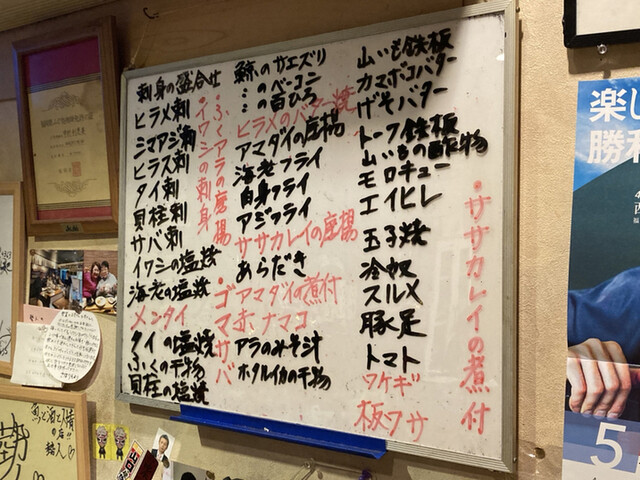 刺身の盛合せ
ヒラメ刺
シマアジ刺
ヒラス刺
タイ刺
貝柱刺
サバ刺
イワシの塩焼
海老の塩焼
メンタイ
タイの塩焼
ふくの干物
貝柱の塩焼
・イワシの刺身
・ふくアラの唐揚
・ゴマサバ
鯨のサエズリ
〃のベーコン
〃の百ひろ
ヒラメのバター焼
アマダイの唐揚
海老フライ
白身フライ
アジフライ
ササカレイの唐揚
あらだき
アマダイの煮付
赤ナマコ
アラのみそ汁
ホタルイカの干物
山いも鉄板
カマボコバター
げそバター
トーフ鉄板
山いもの酢物
モロキュー
エイヒレ
玉子焼
冷奴
スルメ
豚足
トマト
ワケギ
板ワサ
・ササカレイの煮付
魚と酒と人情
の店!!
楽し
勝利
5